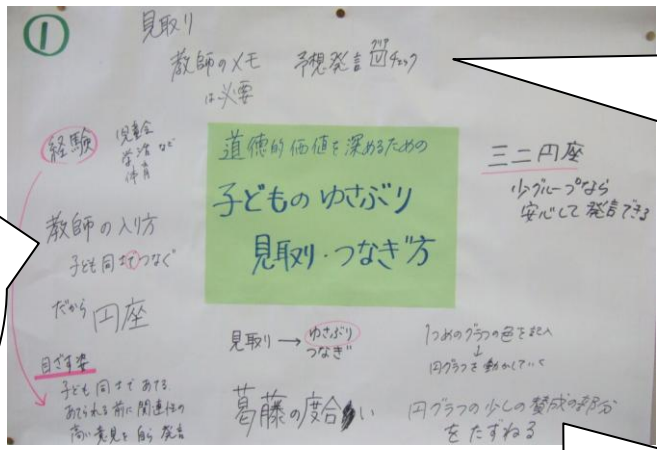 ①
見取り
教師のメモ
は必要
予想発言 チェック
経験
児童会
学活 など
体育
教師の入り方
子ども同士でつなぐ
だから 円座
目ざす姿
子ども同士であてる
あてられる前に関連性の
高い意見を自ら発言
道徳的価値を深めるための
子どものゆさぶり
見取り・つなぎ方
ミニ円座
少グループなら
安心して発言できる
見取り → ゆさぶり
つなぎ
葛藤の度合い
1つめのグラフの色を記入
↓
円グラフを動かしていく
円グラフの少しの賛成の部分
をたずねる